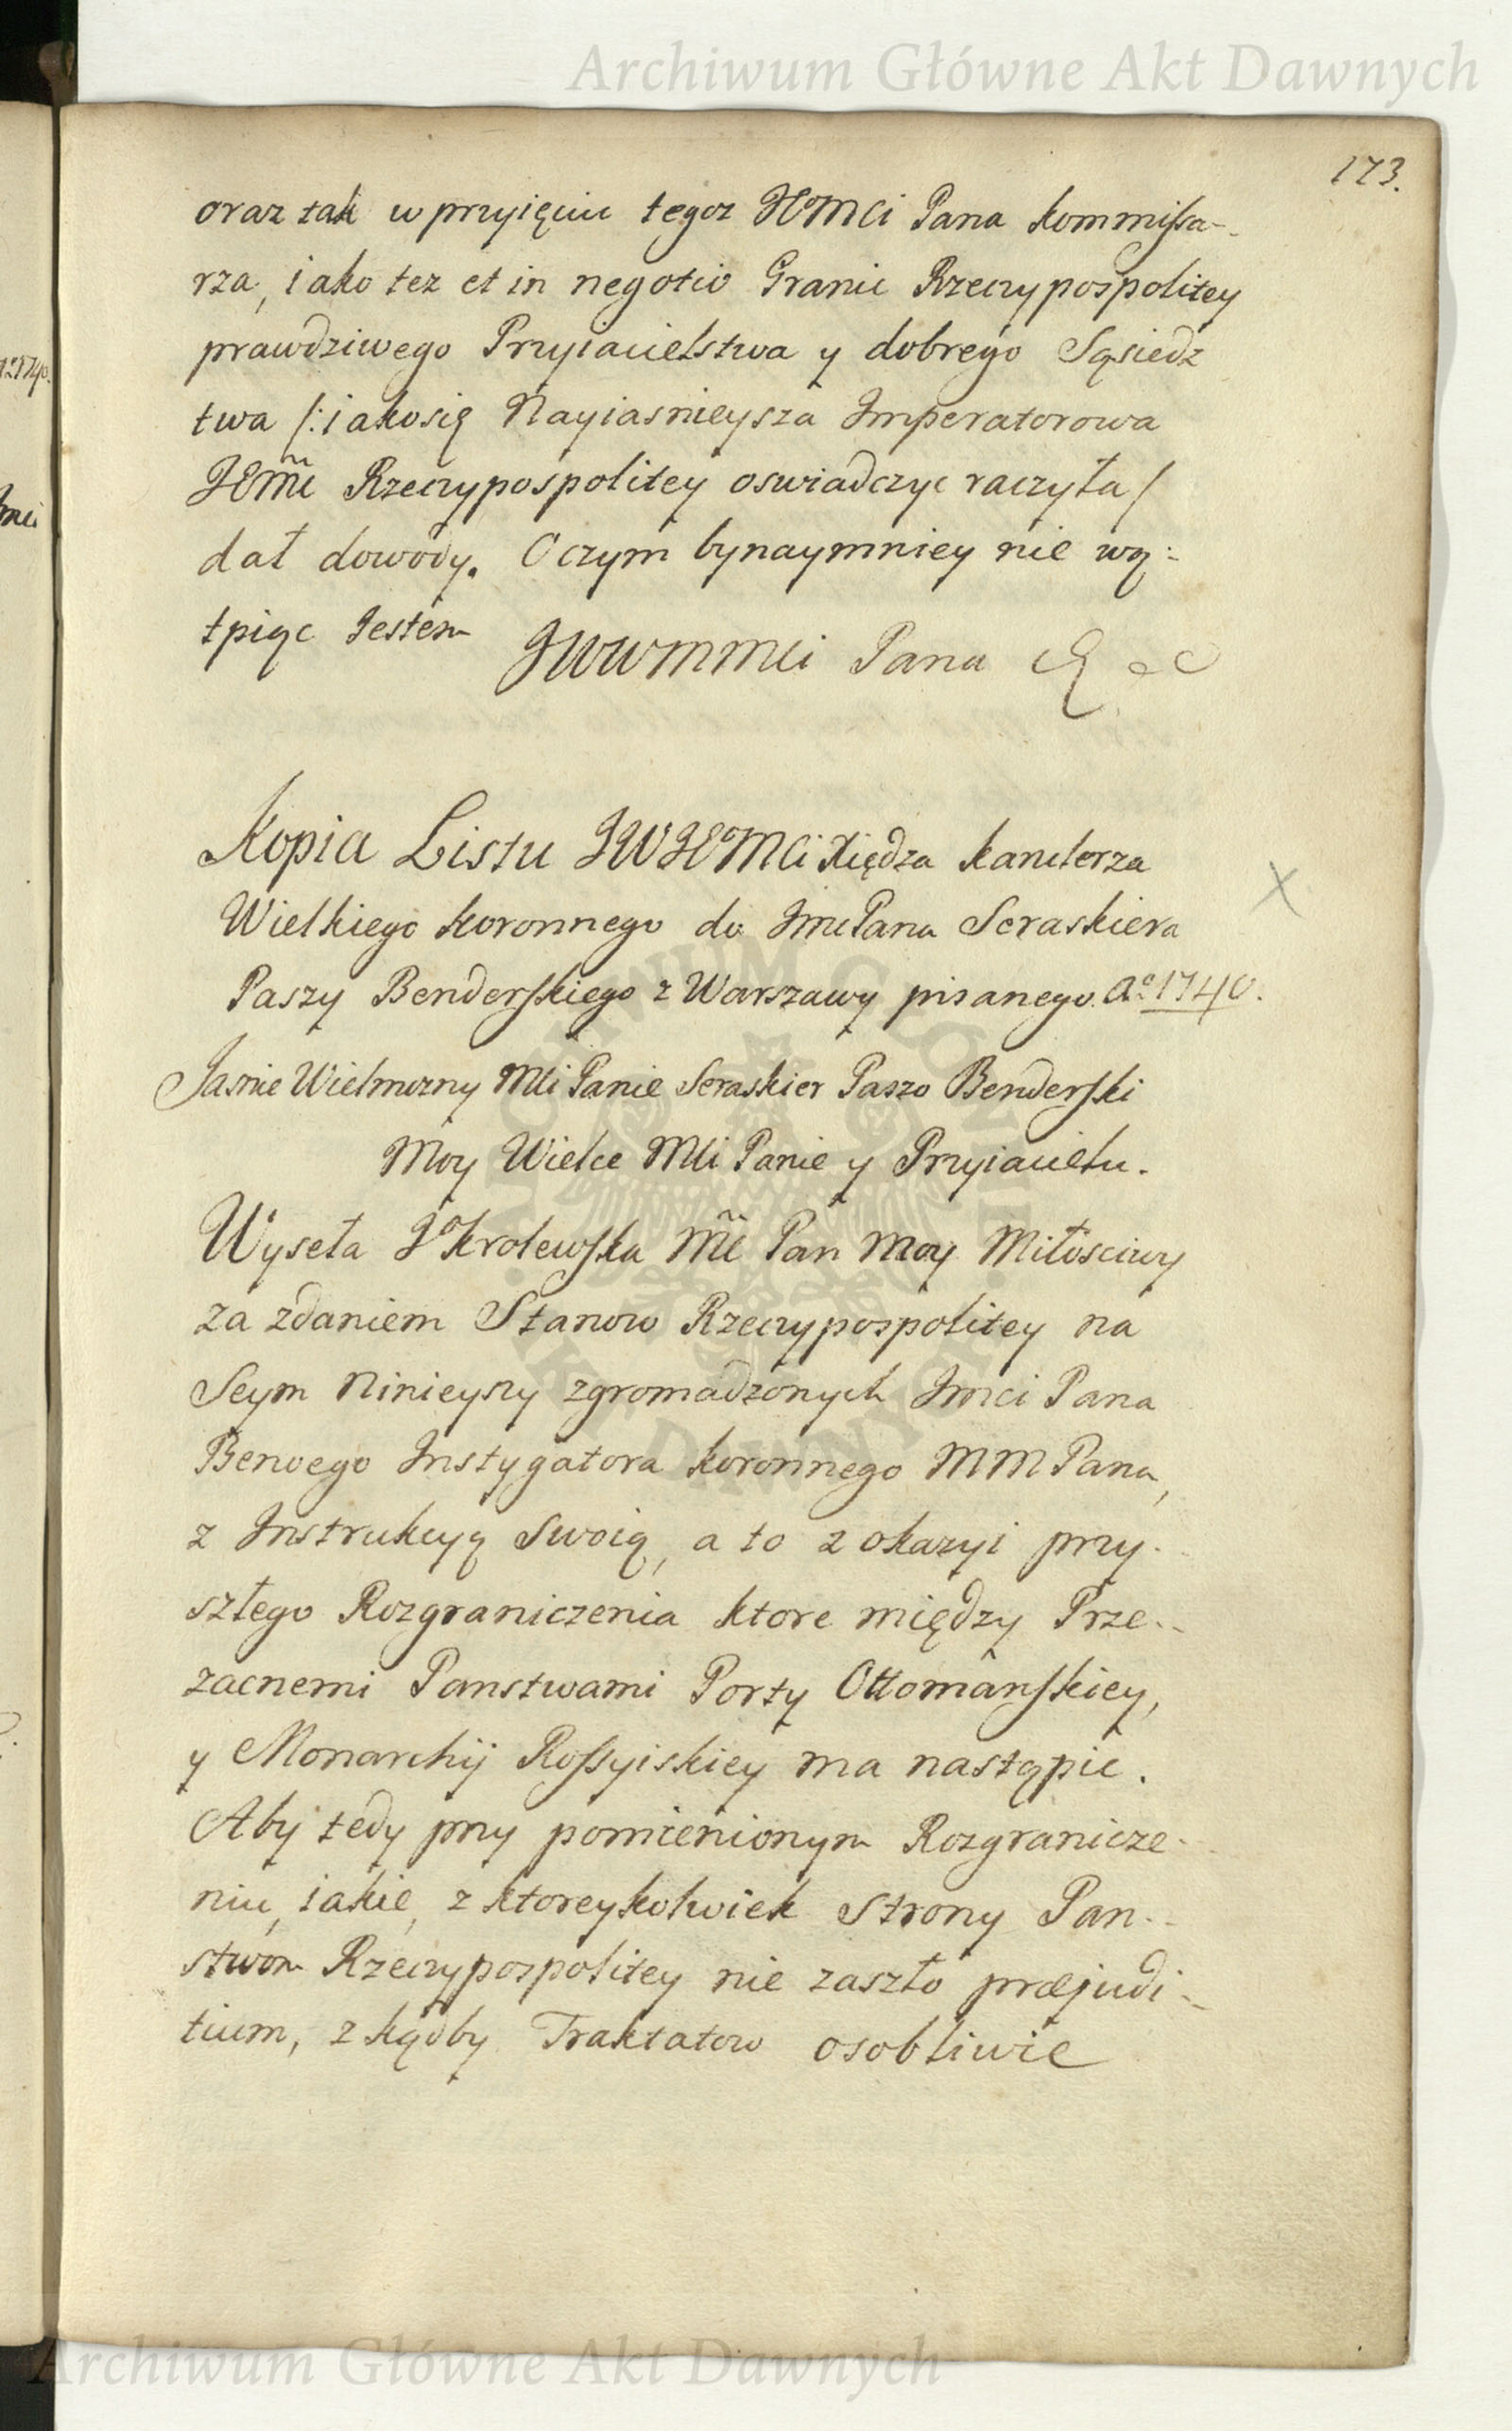 Archiwum Główne Akt Dawnych
173.
oraz tak w przyięciu tegoz JEMCi Pana Kommissa-
rza, iako tez et in negotio Granic Rzeczypospolitey
prawdziwego Przyiacielstwa y dobrego Sąsiedz
twa /: iako się Nayiasnieysza Imperatorowa
JEmc Rzeczypospolitey oswiadczyc raczyła /
dał dowody. O czym bynaymniey nie wą-
tpiąc Jestem
JWWMMCi Pana &c
Kopia Listu JWJEMCi Xiędza Kanclerza
Wielkiego Koronnego do JmcPana Seraskiera
Paszy Benderskiego z Warszawy pisanego. Aº 1740.
Jasnie Wielmozny MCi Panie Seraskier Paszo Benderski
Moy Wielce MCi Panie y Przyiacielu.
Wyseła Jº Krolewska Mc Pan Moy Miłosciwy
za zdaniem Stanow Rzeczypospolitey na
Seym Ninieyszy zgromadzonych Jmci Pana
Benoego Instygatora Koronnego MM Pana,
z Instrukcyą Swoią, a to z okazyi przy-
szłego Rozgraniczenia ktore między Prze-
zacnemi Panstwami Porty Ottomanskiey,
y Monarchij Rossyiskiey ma nastąpic.
Aby tedy przy pomienionym Rozgranicze-
niu, iakie, z ktoreykolwiek Strony Pan-
stwom Rzeczypospolitey nie zaszło præjudi-
tium, zkądby Traktatow osobliwie
Archiwum Główne Akt Dawnych